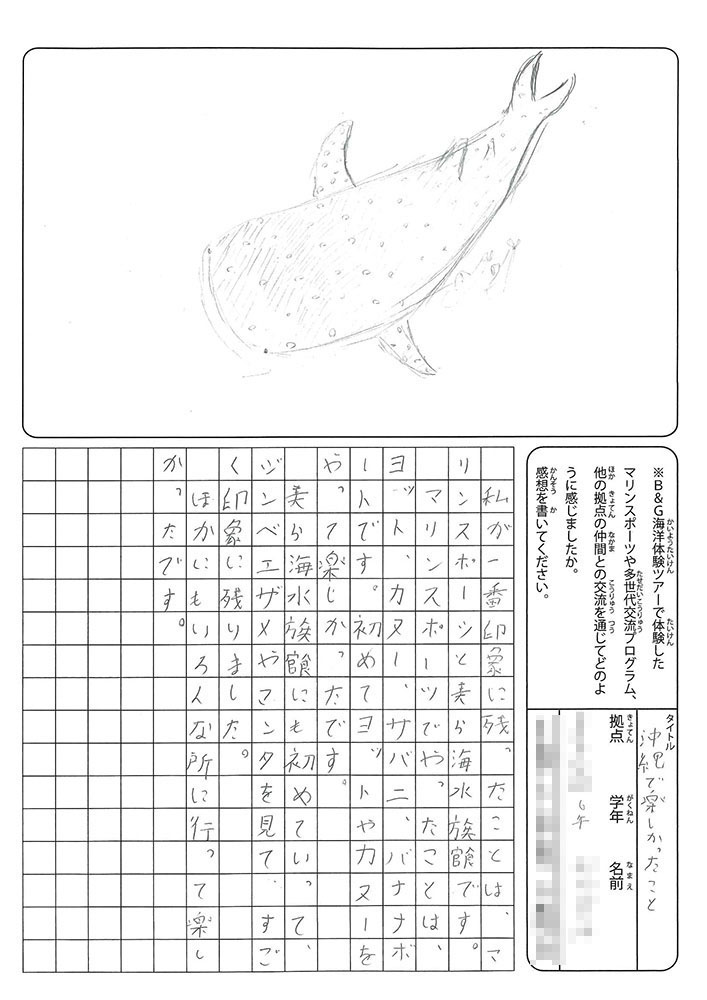 ※B&G海洋体験ツアーで体験した
マリンスポーツや多世代交流プログラム、
他の拠点の仲間との交流を通じてどのよ
うに感じましたか。
感想を書いてください。
タイトル
沖縄で楽しかったこと
拠点 学年 名前
6年
私が一番印象に残ったことは、マ
リンスポーツと美ら海水族館です。
マリンスポーツでやったことは、
ヨット、カヌー、サバニ、バナナボ
ートです。初めてヨットやカヌーを
やって楽しかったです。
美ら海水族館にも初めていって、
ジンベエザメやマンタを見て、すご
く印象に残りました。
ほかにもいろんな所に行って楽し
かったです。